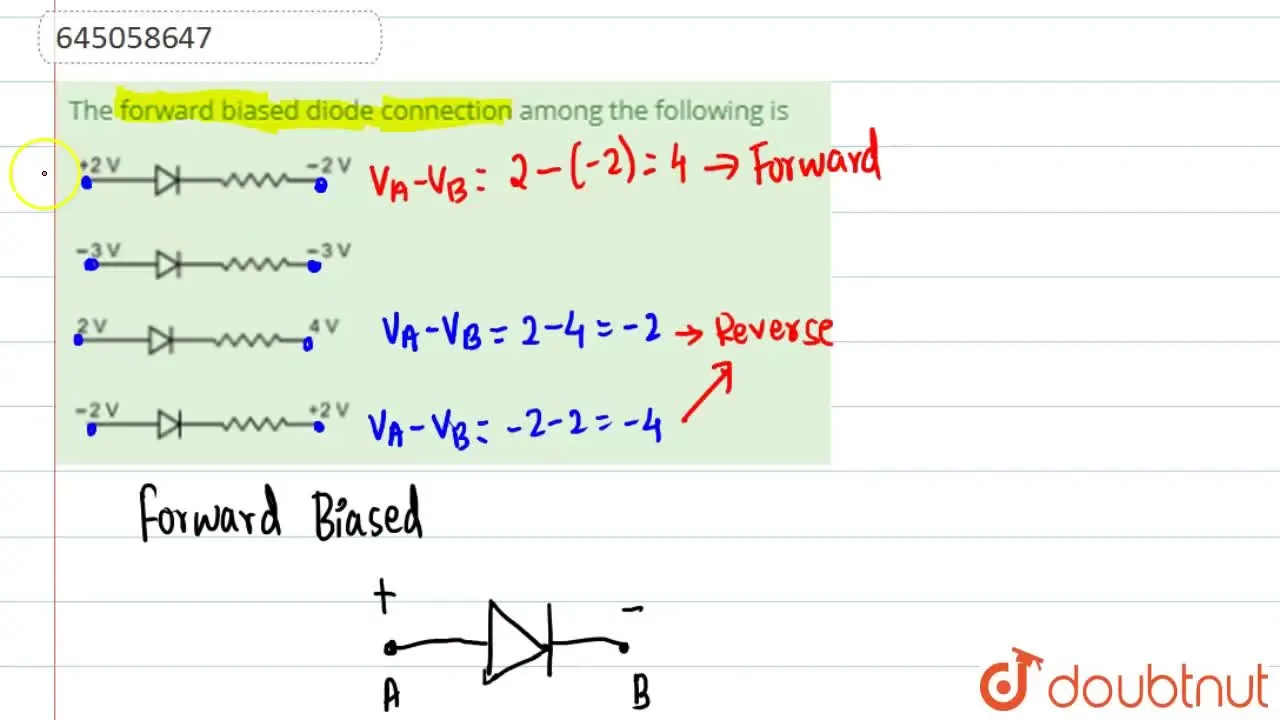 645058647
The forward biased diode connection among the following is
+2 V −2 V V_A − V_B = 2 − (−2) = 4 → Forward
−3 V −3 V
2 V 4 V V_A − V_B = 2 − 4 = −2 → Reverse
−2 V +2 V V_A − V_B = −2 − 2 = −4
Forward Biased
+ −
A B
doubtnut